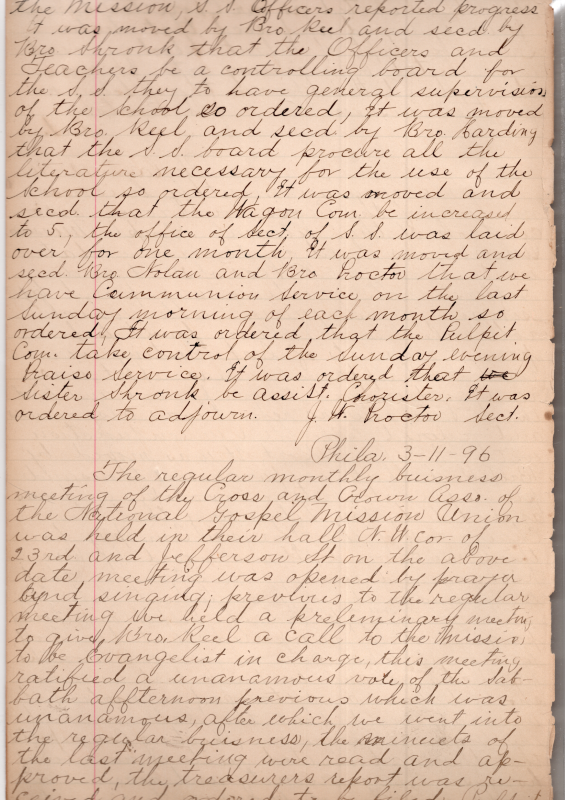 the Mission, S. S. Officers reported progress
it was moved by Bro Keel and secd by
Bro Shronk that the Officers and
Teachers be a controlling board for
the S. S. they to have general supervision
of the school, so ordered, it was moved
by Bro. Keel, and secd by Bro. Harding
that the S. S. board procure all the
literature necessary for the use of the
school so ordered, It was moved and
secd. that the Wagon Com be increased
to 5, the office of Sect. of S. S. was laid
over for one month, it was moved and
secd. Bro Nolan and Bro Proctor that we
have Communion Service on the last
Sunday morning of each month so
ordered, It was ordered that the Pulpit
Com. take control of the Sunday evening
Praise Service. It was ordered that we
Sister Shronk be assist. Chorister, It was
ordered to adjourn. J. W. Proctor Sect.
Phila 3-11-96
The regular monthly buisness
meeting of the Cross and Crown Asso. of
the National Gospel Mission Union
was held in their hall N. W. cor of
23rd and Jefferson St on the above
date meeting was opened by prayer
and singing; previous to the regular
meeting we held a preleminary meeting
to give Bro. Keel a call to the missio
to be Evangelist in charge, this meeting
ratified a unanamous vote of the Sab-
bath affternoon previous which was
unanamous, after which we went into
the regular buisness, the minuets of
the last meeting were read and ap-
proved, the treasurers report was re-
ceived and ordered to be filed,